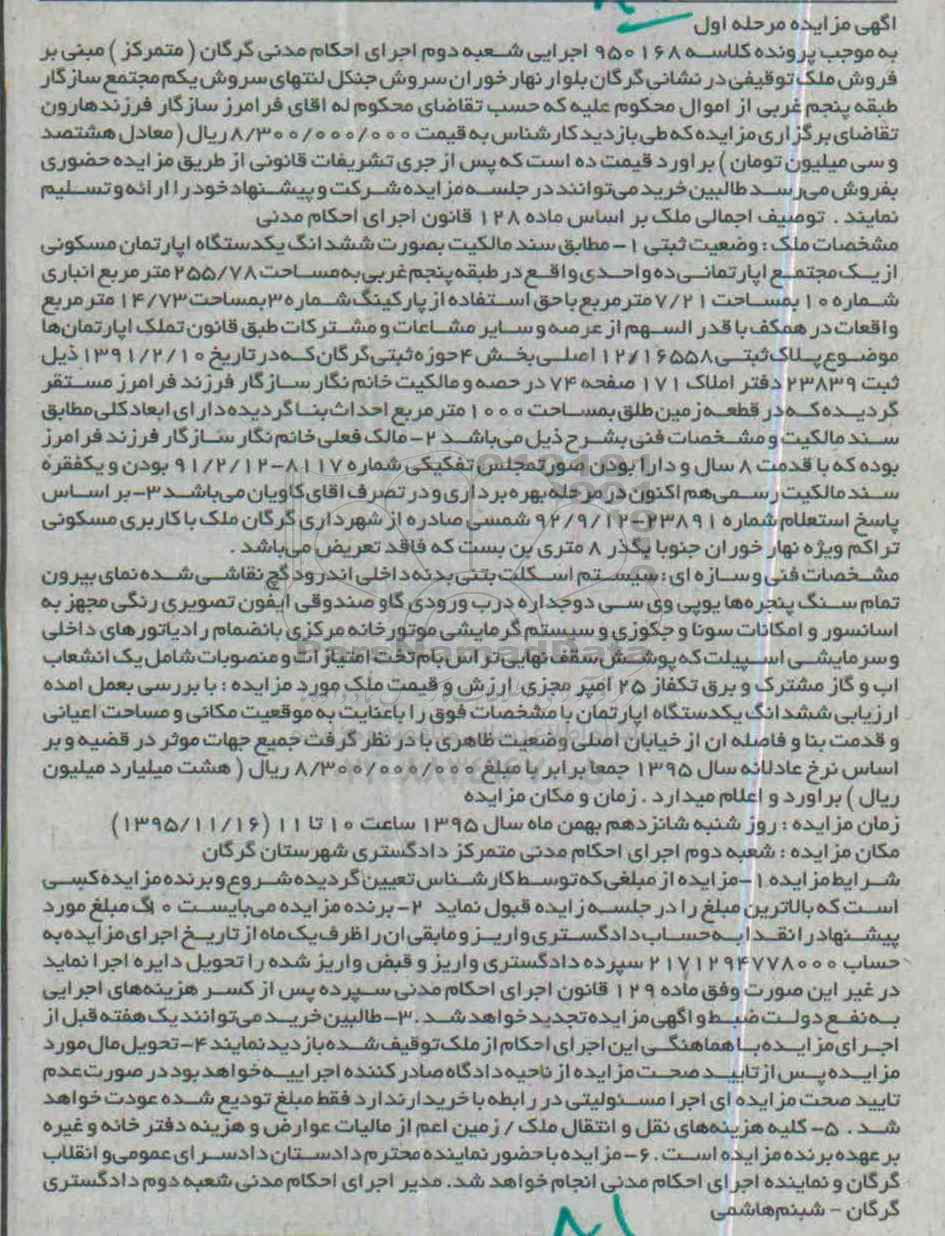 آگهی مزایده مرحله اول
به موجب پرونده کلاسه ۹۵۰۱۶۸ اجرایی شعبه دوم اجرای احکام مدنی گرگان ( متمرکز ) مبنی بر
فروش ملک توقیفی در نشانی گرگان بلوار نهارخوران سروش جنگل انتهای سروش یکم مجتمع سازگار
طبقه پنجم غربی از اموال محکوم علیه که حسب تقاضای محکوم له اقای فرامرز سازگار فرزند هارون
تقاضای برگزاری مزایده که طی بازدید کارشناس به قیمت ۸/۳۰۰/۰۰۰/۰۰۰ ریال ( معادل هشتصد
و سی میلیون تومان ) براورد قیمت ده است که پس از جری تشریفات قانونی از طریق مزایده حضوری
بفروش می‌رسد طالبین خرید می‌توانند در جلسه مزایده شرکت و پیشنهاد خود را ارائه و تسلیم
نمایند . توصیف اجمالی ملک بر اساس ماده ۱۲۸ قانون اجرای احکام مدنی
مشخصات ملک : وضعیت ثبتی ۱- مطابق سند مالکیت بصورت ششدانگ یکدستگاه اپارتمان مسکونی
از یک مجتمع اپارتمانی ده واحدی واقع در طبقه پنجم غربی به مساحت ۲۵۵/۷۸ متر مربع انباری
شماره ۱۰ بمساحت ۷/۲۱ متر مربع با حق استفاده از پارکینگ شماره ۳ بمساحت ۱۴/۷۳ متر مربع
واقعات در همکف با قدر السهم از عرصه و سایر مشاعات و مشترکات طبق قانون تملک اپارتمان ها
موضوع پلاک ثبتی ۱۲/۱۶۵۵۸ اصلی بخش ۴ حوزه ثبتی گرگان که در تاریخ ۱۳۹۱/۲/۱۰ ذیل
ثبت ۲۳۸۳۹ دفتر املاک ۱۷۱ صفحه ۷۴ در حصه و مالکیت خانم نگار سازگار فرزند فرامرز مستقر
گردیده که در قطعه زمین طلق بمساحت ۱۰۰۰ متر مربع احداث بنا گردیده دارای ابعاد کلی مطابق
سند مالکیت و مشخصات فنی بشرح ذیل می‌باشد ۲- مالک فعلی خانم نگار سازگار فرزند فرامرز
بوده که با قدمت ۸ سال و دارا بودن صورتمجلس تفکیکی شماره ۸۱۱۷-۹۱/۲/۱۲ بودن و یکفقره
سند مالکیت رسمی هم اکنون در مرحله بهره برداری و در تصرف اقای کاویان می‌باشد ۳- بر اساس
پاسخ استعلام شماره ۲۳۸۹۱-۹۲/۹/۱۲ شمسی صادره از شهرداری گرگان ملک با کاربری مسکونی
تراکم ویژه نهار خوران جنوبا بگذر ۸ متری بن بست که فاقد تعریض می‌باشد .
مشخصات فنی و سازه ای : سیستم اسکلت بتنی بدنه داخلی اندرود گچ نقاشی شده نمای بیرون
تمام سنگ پنجره ها یوپی وی سی دوجداره درب ورودی گاو صندوقی ایفون تصویری رنگی مجهز به
اسانسور و امکانات سونا و جکوزی و سیستم گرمایشی موتور خانه مرکزی بانضمام رادیاتورهای داخلی
و سرمایشی اسپیلت که پوشش سقف نهایی تراس بام تخت امتیازات و منصوبات شامل یک انشعاب
اب و گاز مشترک و برق تکفاز ۲۵ امپر مجزی. ارزش و قیمت ملک مورد مزایده : با بررسی بعمل امده
ارزیابی ششدانگ یکدستگاه اپارتمان با مشخصات فوق را باعنایت به موقعیت مکانی و مساحت اعیانی
و قدمت بنا و فاصله ان از خیابان اصلی وضعیت ظاهری با در نظر گرفت جمیع جهات موثر در قضیه و بر
اساس نرخ عادلانه سال ۱۳۹۵ جمعا برابر با مبلغ ۸/۳۰۰/۰۰۰/۰۰۰ ریال ( هشت میلیارد میلیون
ریال ) براورد و اعلام میدارد . زمان و مکان مزایده
زمان مزایده : روز شنبه شانزدهم بهمن ماه سال ۱۳۹۵ ساعت ۱۰ تا ۱۱ (۱۳۹۵/۱۱/۱۶)
مکان مزایده : شعبه دوم اجرای احکام مدنی متمرکز دادگستری شهرستان گرگان
شرایط مزایده ۱- مزایده از مبلغی که توسط کارشناس تعیین گردیده شروع و برنده مزایده کسی
است که بالاترین مبلغ را در جلسه زایده قبول نماید ۲- برنده مزایده می‌بایست مبلغ مورد
پیشنهاد را نقدا به حساب دادگستری واریز و مابقی ان را ظرف یک ماه از تاریخ اجرای مزایده به
حساب ۲۱۷۱۲۹۴۷۷۸۰۰۰ سپرده دادگستری واریز و قبض واریز شده را تحویل دایره اجرا نماید
در غیر این صورت وفق ماده ۱۲۹ قانون اجرای احکام مدنی سپرده پس از کسر هزینه‌های اجرایی
به نفع دولت ضبط و اگهی مزایده تجدید خواهد شد . ۳- طالبین خرید می‌توانند یک هفته قبل از
اجرای مزایده با هماهنگی این اجرای احکام از ملک توقیف شده بازدید نمایند ۴- تحویل مال مورد
مزایده پس از تایید صحت مزایده از ناحیه دادگاه صادر کننده اجراییه خواهد بود در صورت عدم
تایید صحت مزایده ای اجرا مسئولیتی در رابطه با خریدار ندارد فقط مبلغ تودیع شده عودت خواهد
شد . ۵- کلیه هزینه‌های نقل و انتقال ملک / زمین اعم از مالیات عوارض و هزینه دفتر خانه و غیره
بر عهده برنده مزایده است . ۶- مزایده با حضور نماینده محترم دادستان دادسرای عمومی و انقلاب
گرگان و نماینده اجرای احکام مدنی انجام خواهد شد. مدیر اجرای احکام مدنی شعبه دوم دادگستری
گرگان - شبنم هاشمی